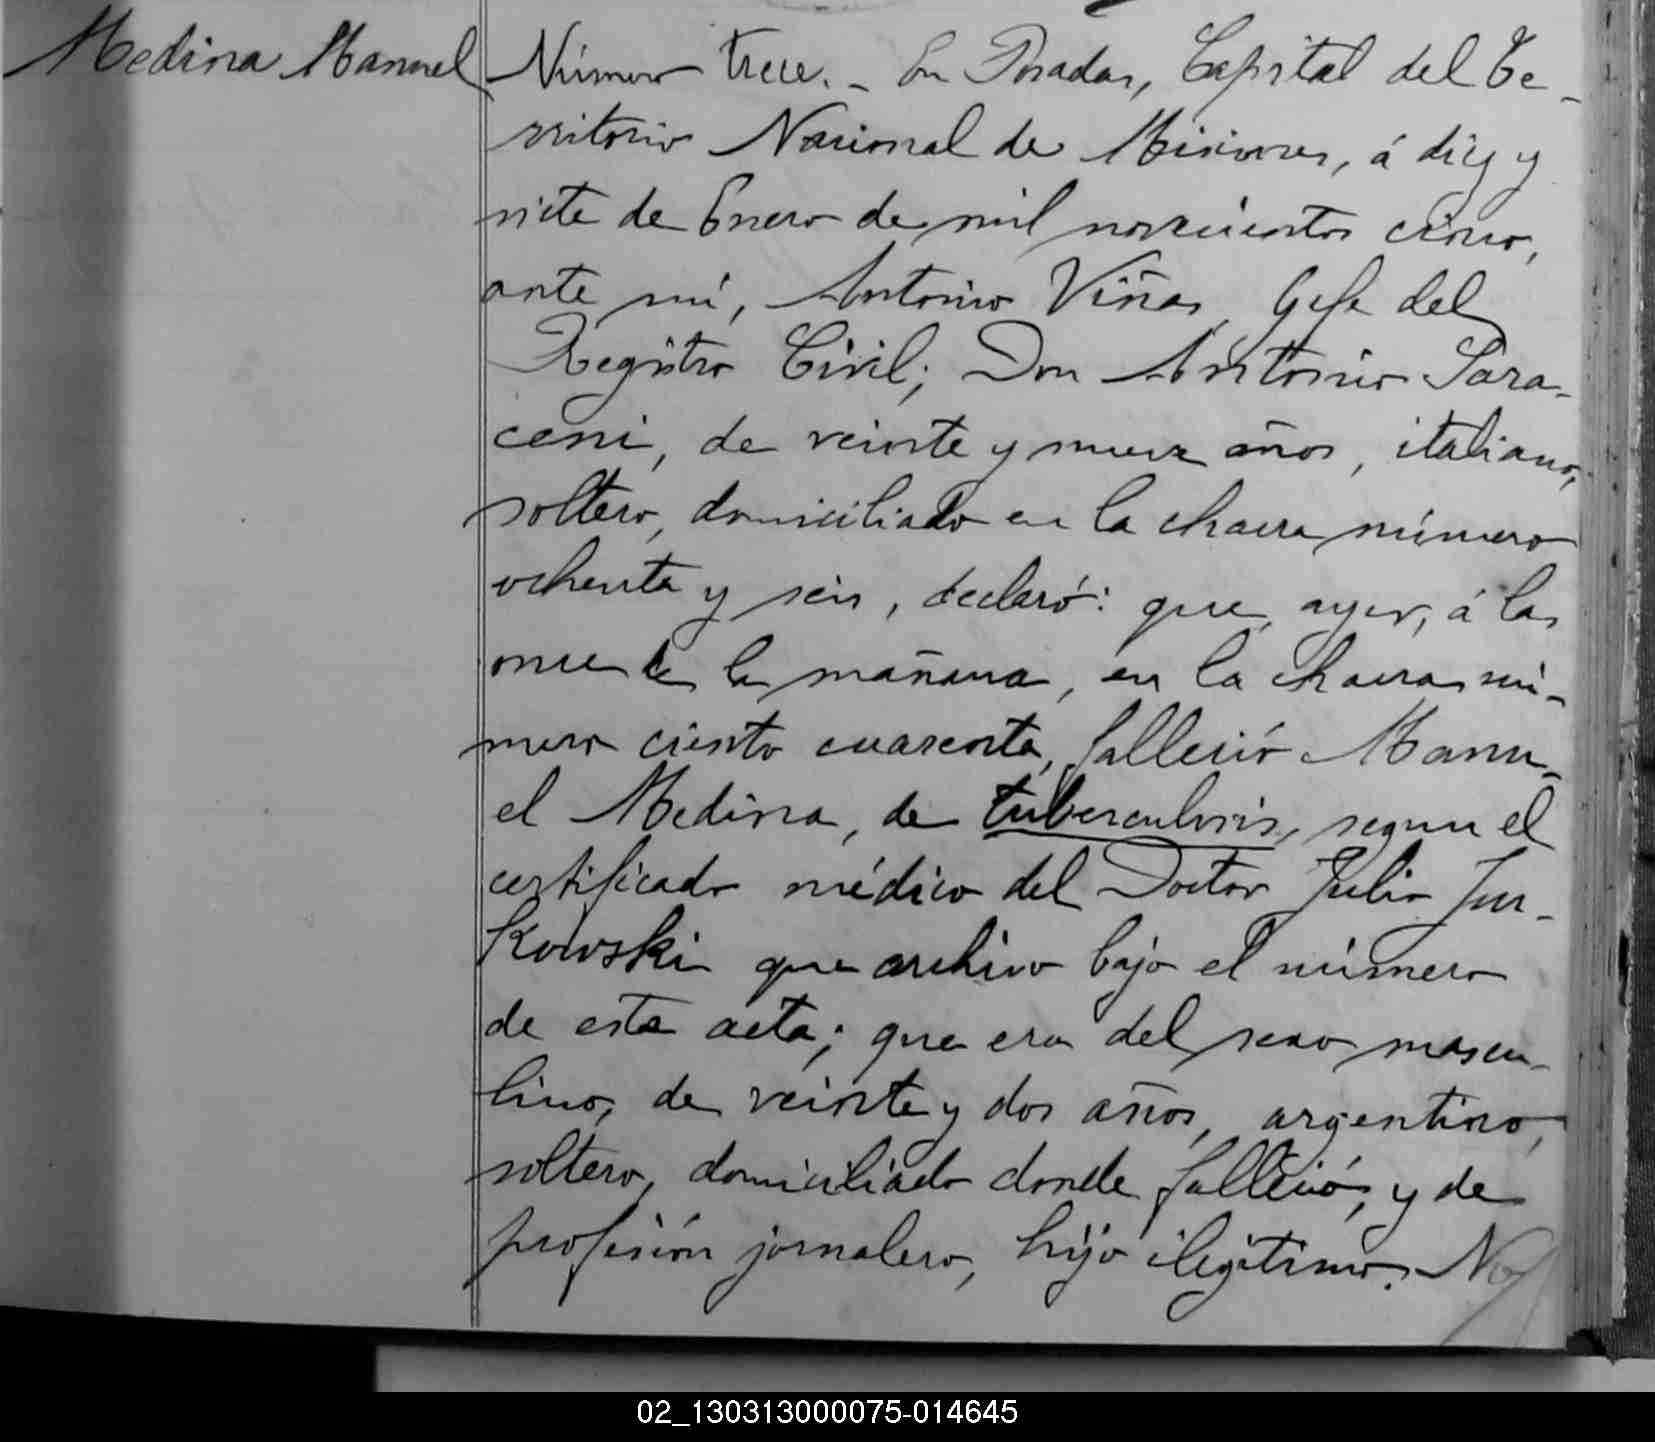 Medina Manuel
Número trece. - En Posadas, Capital del Te-
rritorio Nacional de Misiones, á diez y
siete de Enero de mil novecientos cinco,
ante mí, Antonio Viñas, Gefe del
Registro Civil; Don Antonio Sara-
ceni, de veinte y nueve años, italiano,
soltero, domiciliado en la chacra número
ochenta y seis, declaró: que, ayer, á las
once de la mañana, en la chacra nú-
mero ciento cuarenta, falleció Manu-
el Medina, de tuberculosis, segun el
certificado médico del Doctor Julio Jur-
Kowski que archivo bajo el número
de esta acta; que era del sexo mascu-
lino, de veinte y dos años, argentino,
soltero, domiciliado donde falleció, y de
profesión jornalero, hijo ilegítimo. No
02_130313000075-014645